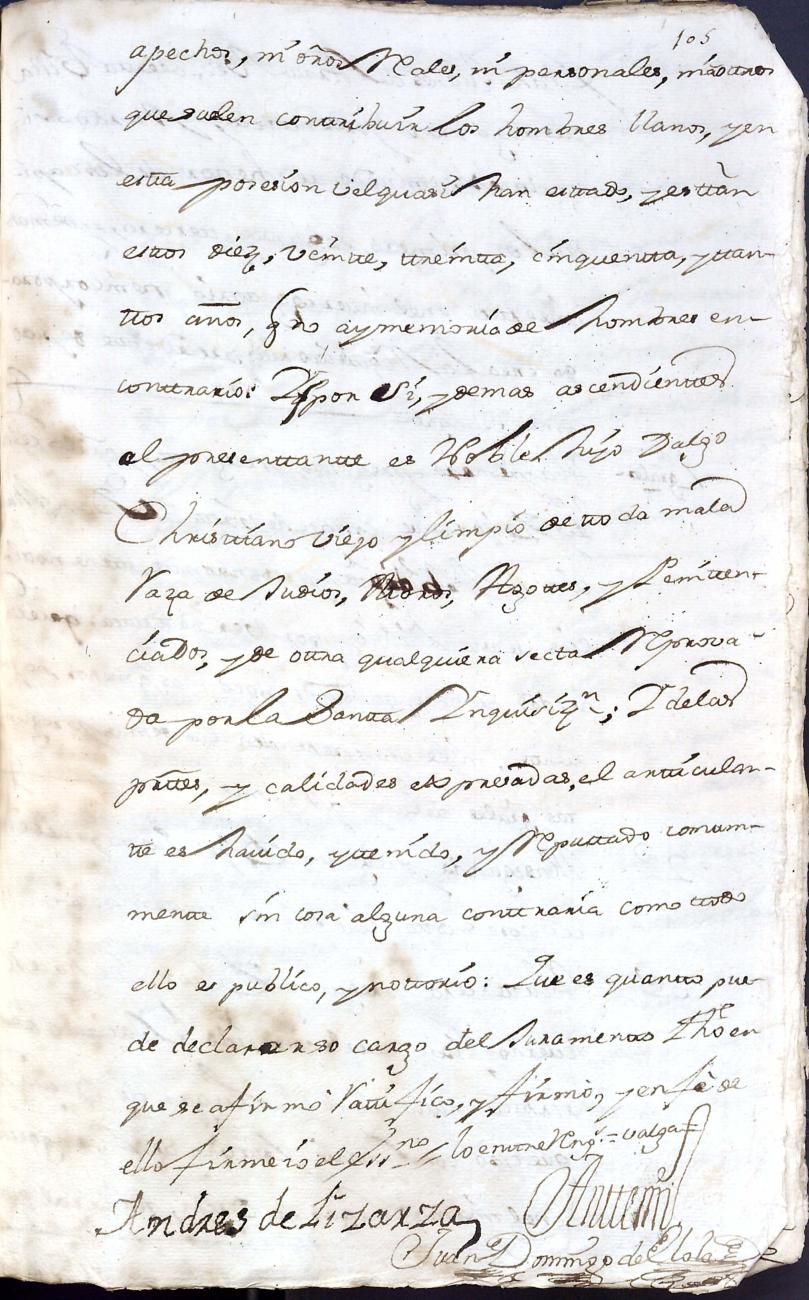 105
apechos, ni otros Reales, ni personales, ni a otros
que suelen conttribuir los hombres llanos, y en
estta posesion vel quasi han esttado, y esttàn
esttos diez, veintte, ttreintta, cinquentta, y ttan-
ttos años, q̃ no ay memoria de hombres en-
conttrario: Y por si, y demas ascendienttes
el presenttantte es Noble hijo Dalgo
Christtiano viejo y limpio de ttoda mala
Raza de Judios, Moros, Agottes, y Penitten-
ciados, y de ottra qualquiera secta Reprova-
da por la Santta Ynquisiz.n; Y de las
parttes, y calidades expresadas, el artticulan-
tte es havido, y ttenido, y Reputtado comun-
mentte sin cosa alguna conttraria como ttodo
ello es publico, y nottorio: Que es quantto pue-
de declarar so cargo del Juramentto dho en
que se afirmò Rattificò, y firmò, y en fe de
ello firmè io el ess.no lo enttre Rengs = valga =
Andres de Lizarza
Antte mi
Juan Domingo de Olola